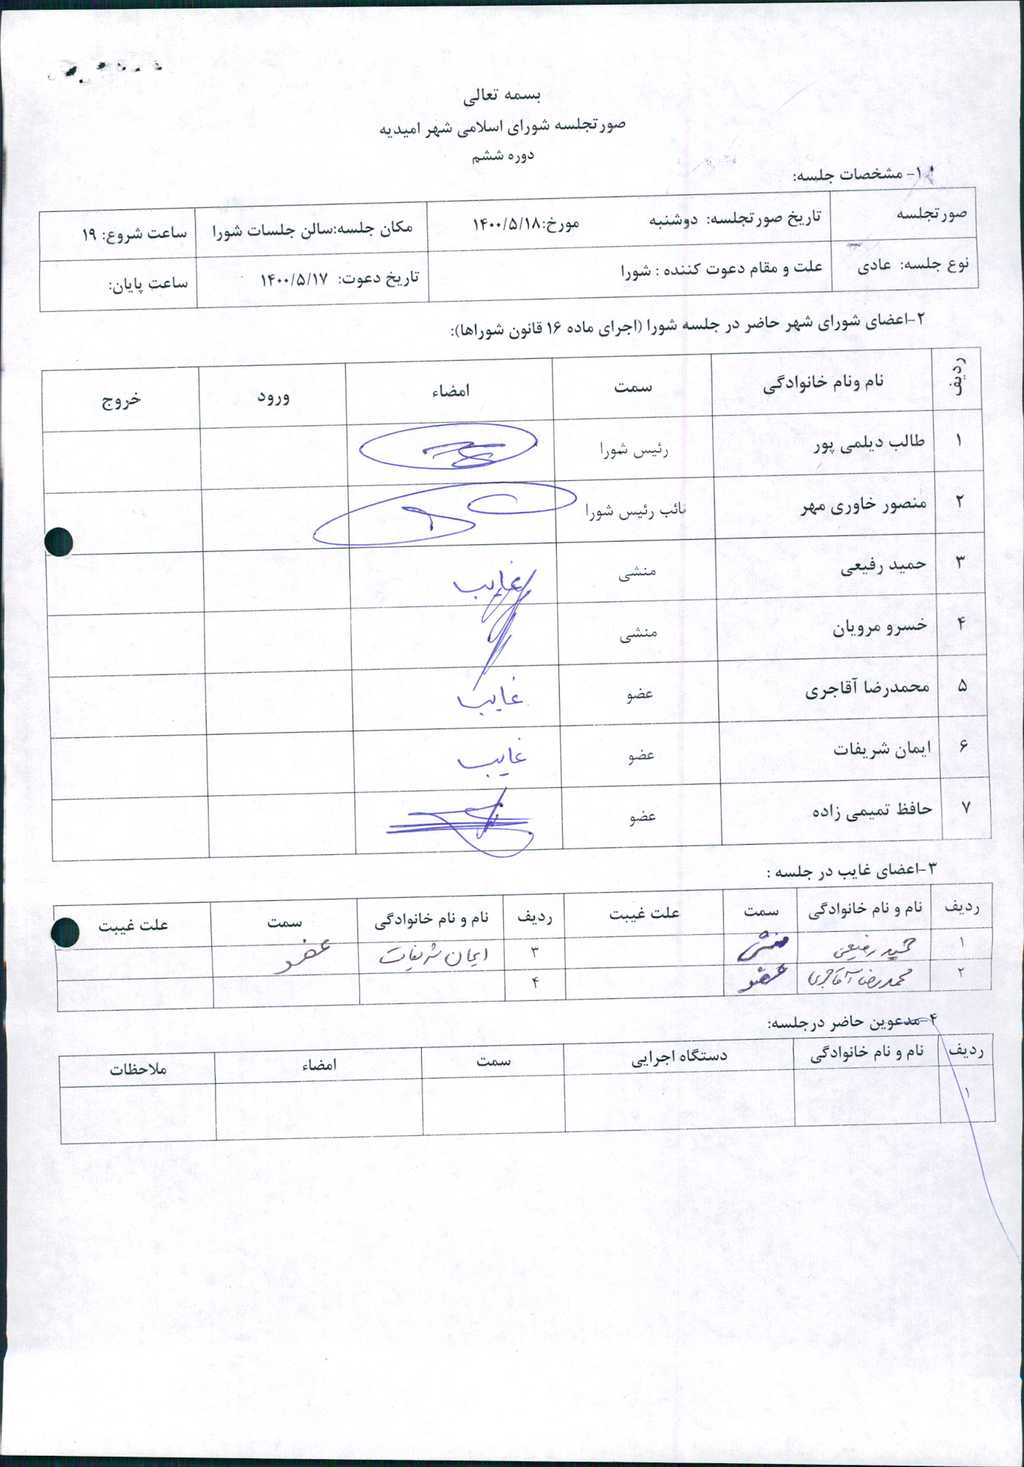 بسمه تعالی
صورتجلسه شورای اسلامی شهر امیدیه
دوره ششم
۱- مشخصات جلسه:
صورتجلسه تاریخ صورتجلسه: دوشنبه مورخ:۱۴۰۰/۵/۱۸ مکان جلسه:سالن جلسات شورا ساعت شروع: ۱۹
نوع جلسه: عادی علت و مقام دعوت کننده : شورا تاریخ دعوت: ۱۴۰۰/۵/۱۷ ساعت پایان:
۲-اعضای شورای شهر حاضر در جلسه شورا (اجرای ماده ۱۶ قانون شوراها):
ردیف نام ونام خانوادگی سمت امضاء ورود خروج
۱ طالب دیلمی پور رئیس شورا
۲ منصور خاوری مهر نائب رئیس شورا
۳ حمید رفیعی منشی غایب
۴ خسرو مرویان منشی
۵ محمدرضا آقاجری عضو غایب
۶ ایمان شریفات عضو غایب
۷ حافظ تمیمی زاده عضو
۳-اعضای غایب در جلسه :
ردیف نام و نام خانوادگی سمت علت غیبت ردیف نام و نام خانوادگی سمت علت غیبت
۱ حمید رفیعی منشی ۳ ایمان شریفات عضو
۲ محمدرضا آقاجری عضو ۴
۴-مدعوین حاضر درجلسه:
ردیف نام و نام خانوادگی دستگاه اجرایی سمت امضاء ملاحظات
۱